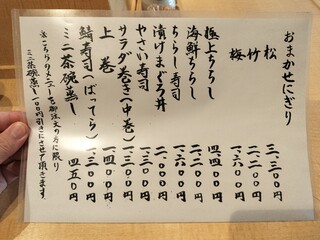 おまかせにぎり
松 三、三〇〇円
竹 二、二〇〇円
梅 一、六〇〇円
極上ちらし 四、四〇〇円
海鮮ちらし 二、二〇〇円
ちらし寿司 一、六〇〇円
漬けまぐろ丼 二、〇〇〇円
やさい寿司 一、三〇〇円
サラダ巻き(中巻) 一、二〇〇円
上巻 一、四〇〇円
鯖寿司(ばってら) 一、三〇〇円
ミニ茶碗蒸し 四五〇円
※こちらのメニューを御注文の方に限り
ミニ茶碗蒸し一〇〇円引きにさせて頂きます。